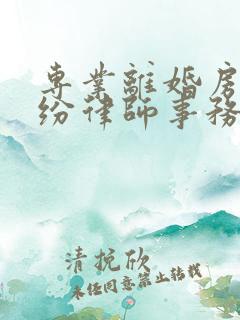 専業離婚房
纷律師事務
清抗欣
未经同意禁止转载